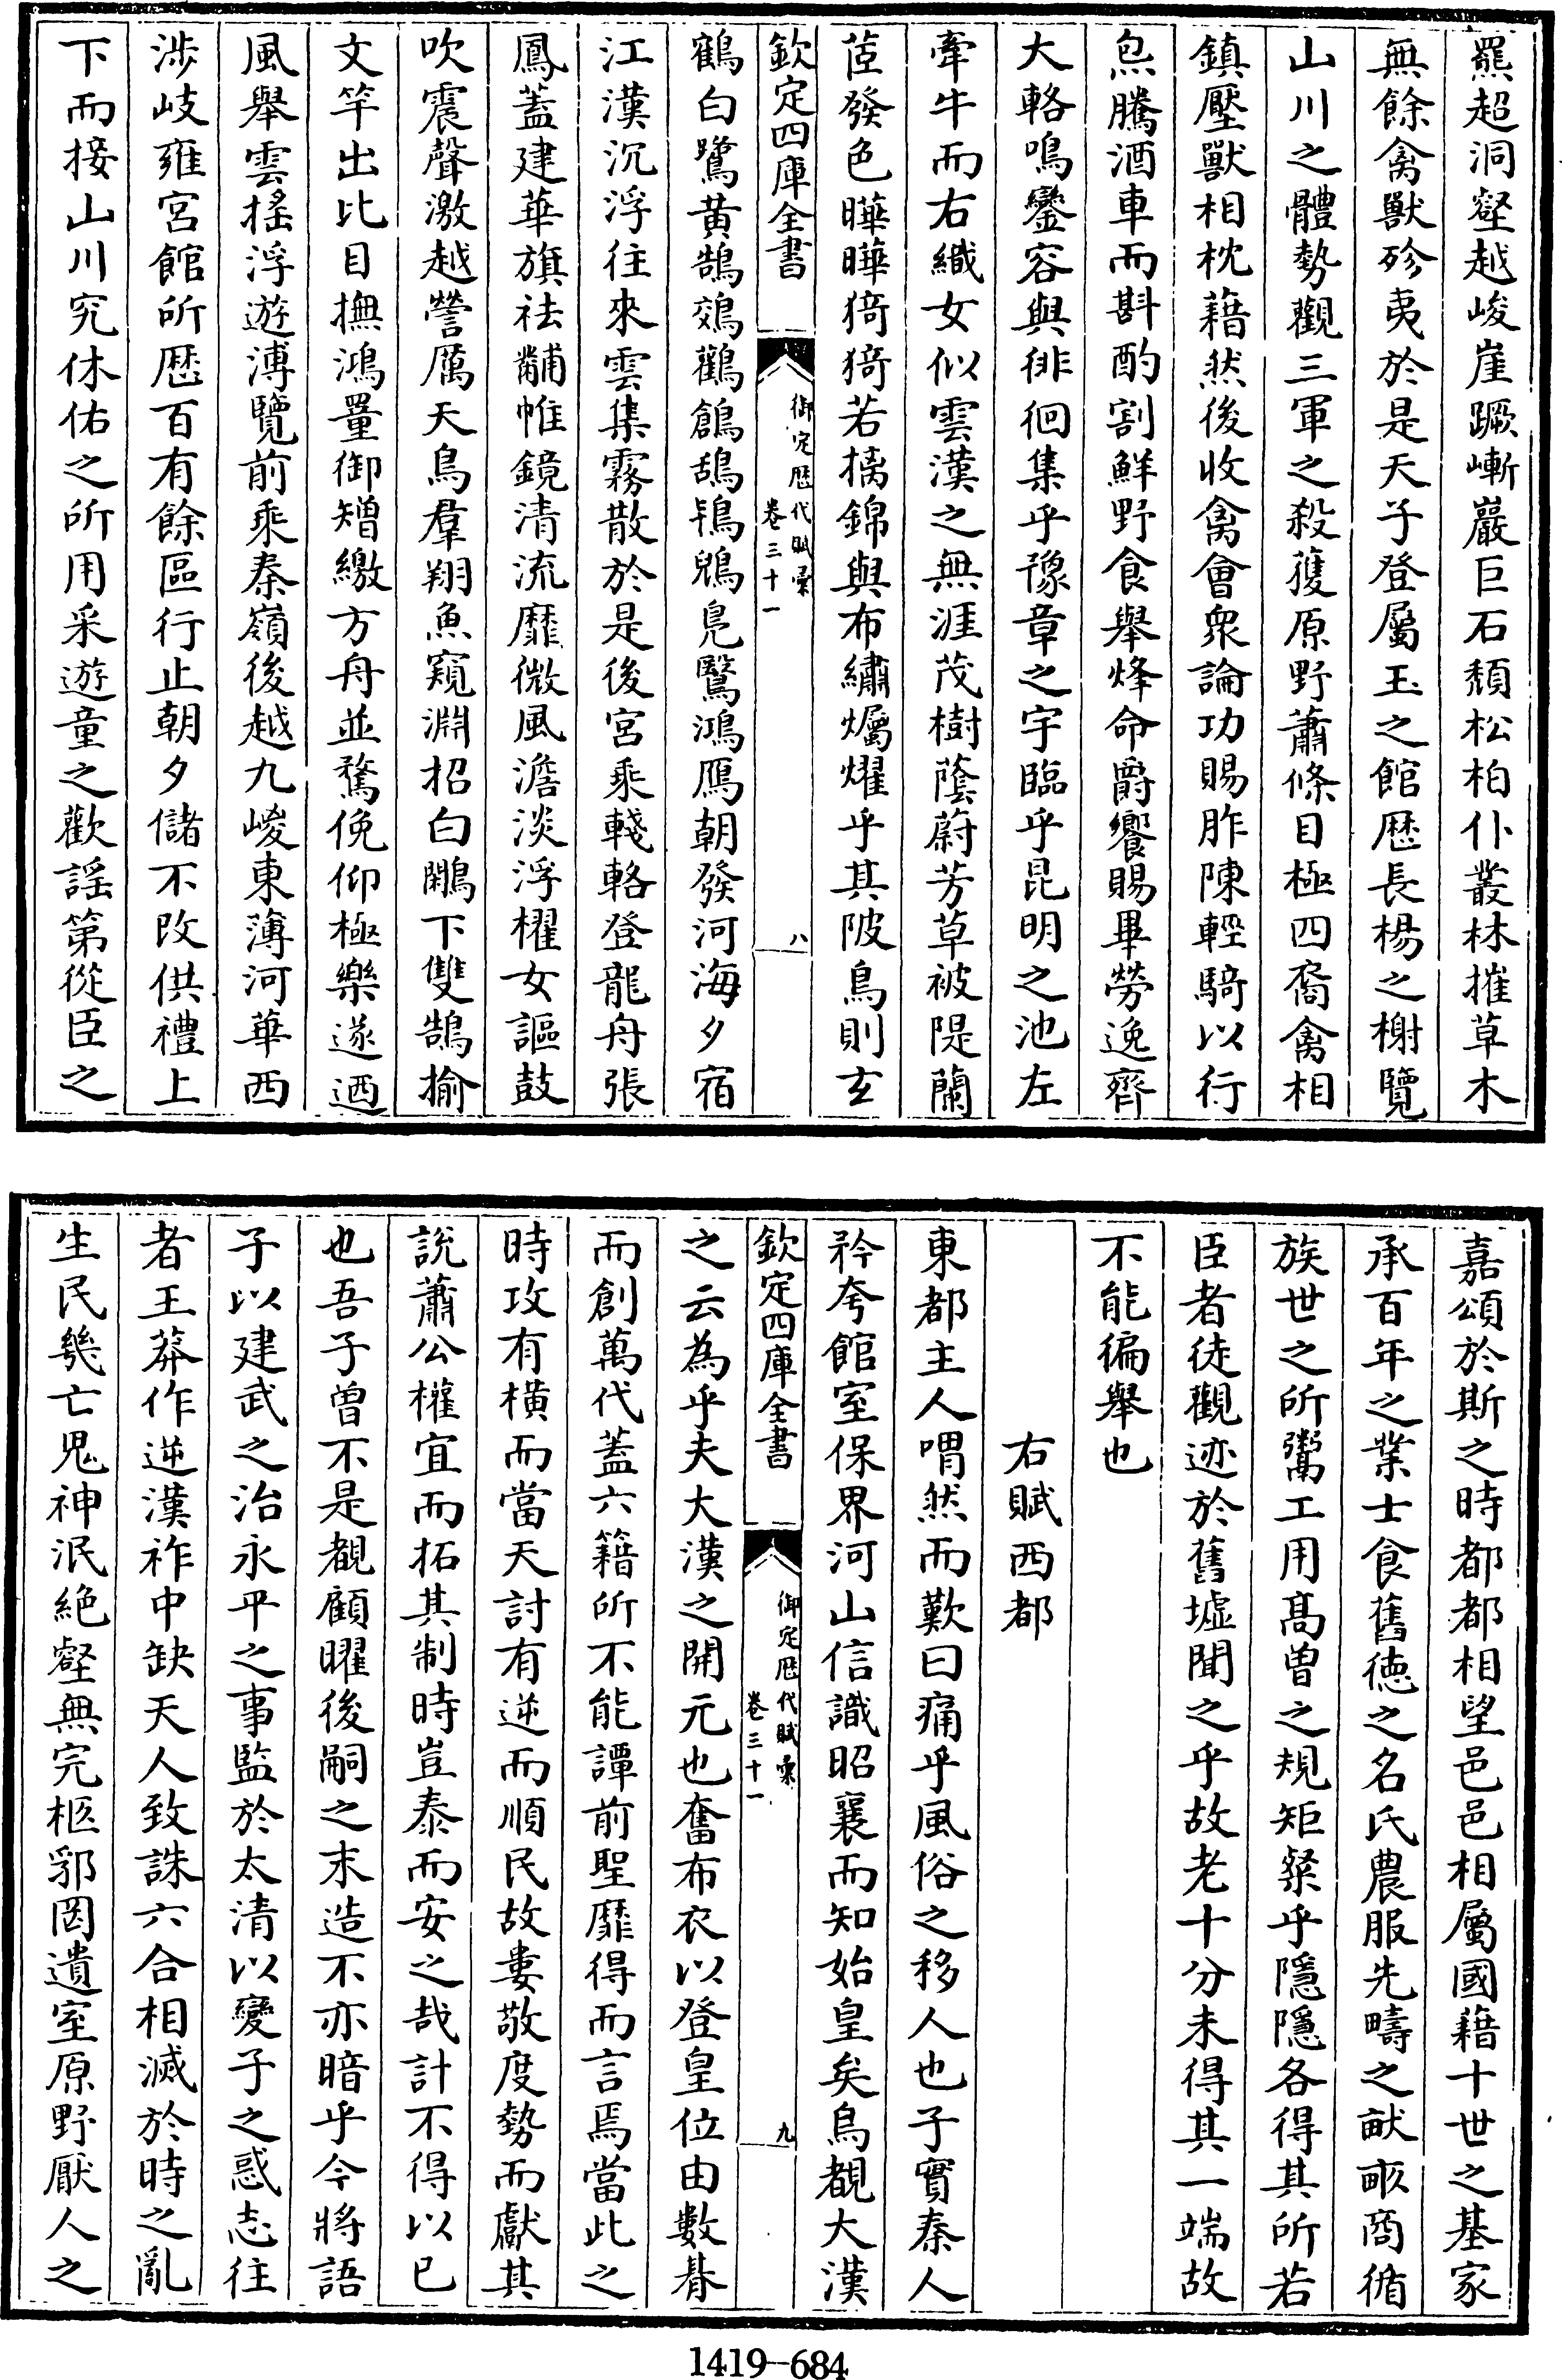 羆超洞壑越峻崖蹶嶃巖巨石頹松柏仆叢林摧草木
無餘禽獸殄夷於是天子登屬玉之館歴長楊之榭覽
山川之體勢觀三軍之殺獲原野蕭條目極四裔禽相
鎮壓獸相枕藉然後收禽會衆論功賜胙陳輕騎以行
炰騰酒車而斟酌割鮮野食舉烽命爵饗賜畢勞逸齊
大輅鳴鑾容與徘徊集乎豫章之宇臨乎昆明之池左
牽牛而右織女似雲漢之無涯茂樹蔭蔚芳草被隄蘭
茝發色曄曄猗猗若摛錦與布繡爥燿乎其陂鳥則玄
欽定四庫全書
御定歴代賦彚
卷三十一
八
鶴白鷺黃鵠鵁鸛鶬鴰鴇鶂鳧鷖鴻鴈朝發河海夕宿
江漢沉浮往來雲集霧散於是後宮乘輚輅登龍舟張
鳳蓋建華旗袪黼帷鏡清流靡微風澹淡浮櫂女謳鼓
吹震聲激越謍厲天鳥羣翔魚窺淵招白鷴下雙鵠揄
文竿出比目撫鴻罿御矰繳方舟並騖俛仰極樂遂迺
風舉雲搖浮遊溥覽前乘秦嶺後越九嵕東薄河華西
涉岐雍宮館所歴百有餘區行止朝夕儲不改供禮上
下而接山川究休佑之所用采遊童之歡謡第從臣之
嘉頌於斯之時都都相望邑邑相屬國藉十世之基家
承百年之業士食舊徳之名氏農服先疇之畎畝商循
族世之所鬻工用髙曽之規矩粲乎隱隱各得其所若
臣者徒觀迹於舊墟聞之乎故老十分未得其一端故
不能徧舉也
右賦西都
東都主人喟然而歎曰痛乎風俗之移人也子實秦人
矜夸館室保界河山信識昭襄而知始皇矣烏覩大漢
欽定四庫全書
御定歴代賦彚
卷三十一
九
之云為乎夫大漢之開元也奮布衣以登皇位由數朞
而創萬代蓋六籍所不能譚前聖靡得而言焉當此之
時攻有橫而當天討有逆而順民故婁敬度勢而獻其
說蕭公權宜而拓其制時豈泰而安之哉計不得以已
也吾子曽不是覩顧曜後嗣之末造不亦暗乎今將語
子以建武之治永平之事監於太清以變子之惑志往
者王莽作逆漢祚中缺天人致誅六合相滅於時之亂
生民幾亡鬼神泯絶壑無完柩郛罔遺室原野厭人之
1419-684